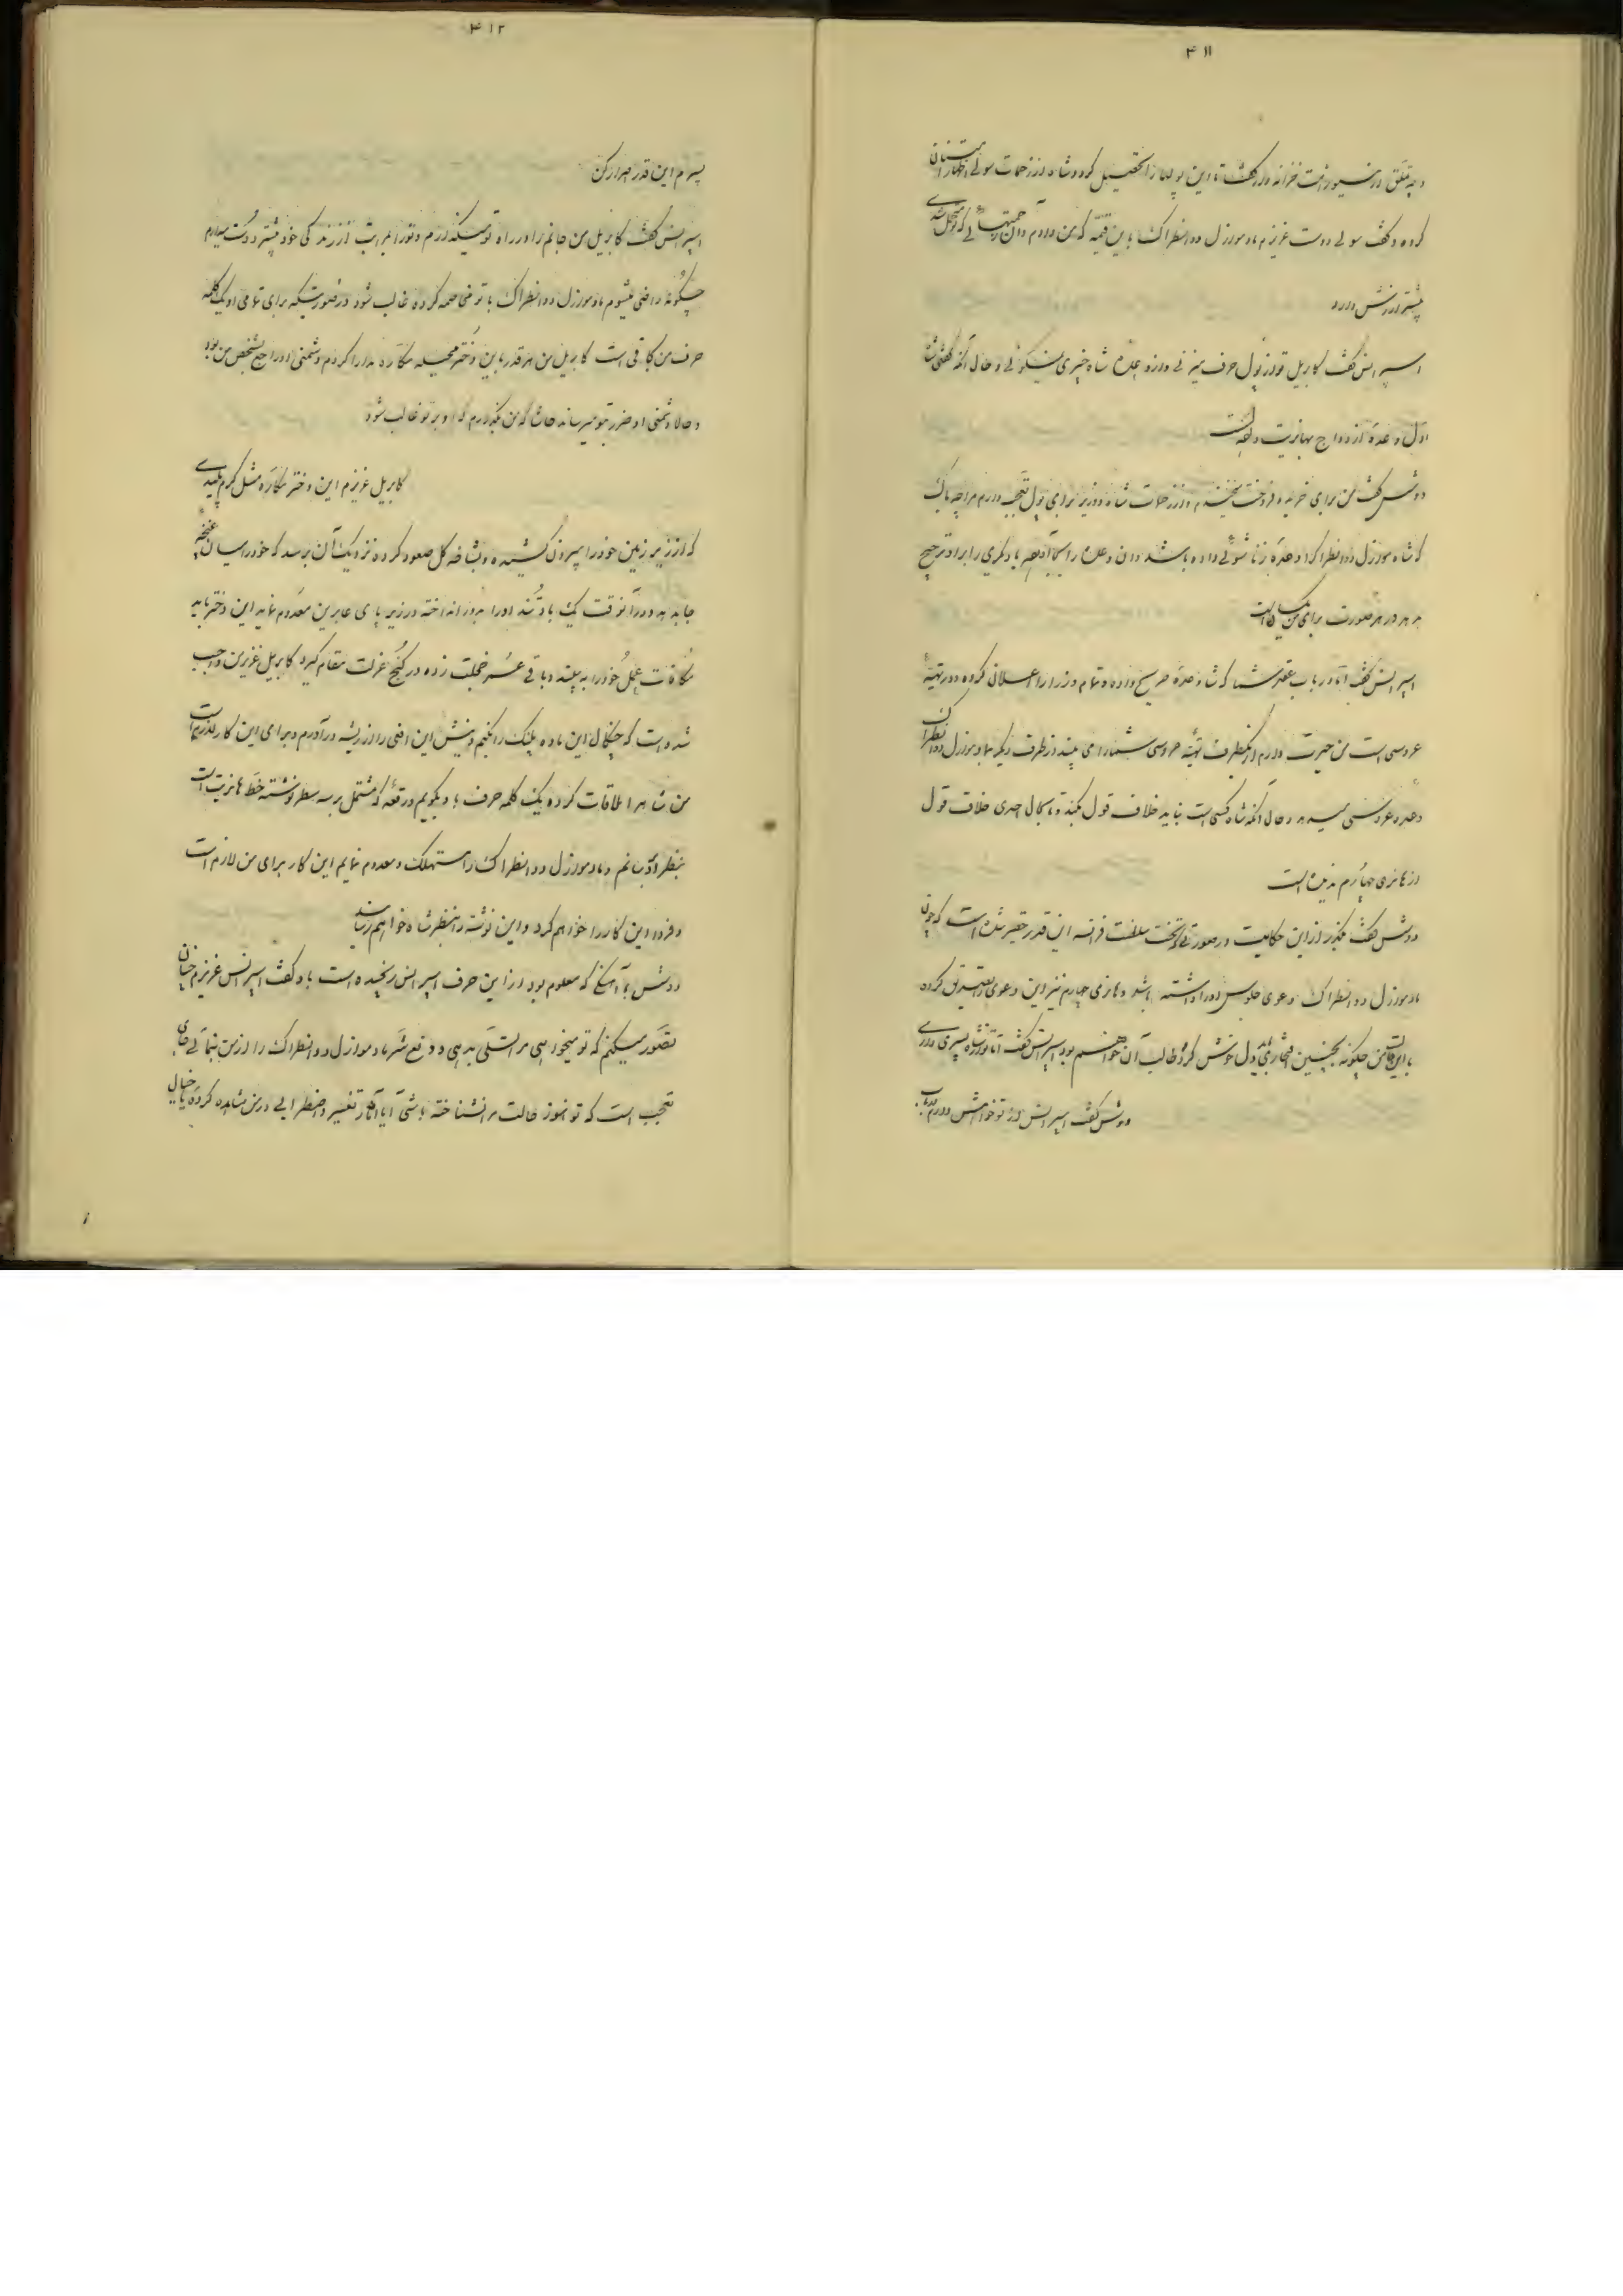 ۴۱۱
کرده و گفت سولی دوست عزیزم مادموازل دو انطراک باین قیمه که من دارم و آن زحمتهائی که تو متحمل شدی
بیشتر ارزش دارد
اسپرانس گفت کابریل تو از پول حرف میزنی و از وعده شاه چیزی نمیگوئی و حال آنکه گفتی شاه
اول وعده ازدواج بهانریت داده است
دوشس گفت من برای خرید و فروخت میخندم و از زحمات شاه و وزیر برای پول تعجب دارم مرا چه باک
که شاه بمادموازل دو انطراک وعده زناشوئی داده باشد و آن وعده را بجا آورد یا دیگری را بر او ترجیح
بدهد در هر صورت برای من یکسان است
اسپرانس گفت اما در باب عقد شما که شاه وعده صریح داده و تمام وزرا را اعلان کرده و در تهیه
عروسی است من حیرت دارم از یکطرف تهیه عروسی شما را می بیند از طرف دیگر بمادموازل دو انطراک
وعده عروسی میدهد و حال آنکه شاه کسی است نباید خلاف قول بکند و تا بحال احدی خلاف قول
از هانری چهارم ندیده است
دوشس گفت بگذر از این حکایت در صورتیکه تخت سلطنت فرانسه این قدر حقیر شده است که چون
مادموازل دو انطراک دعوی جلوس او را داشته باشد و هانری چهارم نیز این دعوی را تصدیق کرده
دوشس گفت اسپرانس از تو خواهش دارم
۴۱۲
پسرم این قدر اصرار کن
اسپرانس گفت کابریل من جانم را در راه تو میگذارم و تو را بمراتب از زندگی خود بیشتر دوست میدارم
چگونه راضی میشوم مادموازل دو انطراک با تو مخاصمه کرده غالب شود در صورتیکه برای تمامی او یک کلمه
حرف من کافی است کابریل من هر قدر باین دختر محیله مکاره مدارا کردم دشمنی او راجع بشخص من بود
و حالا دشمنی او ضرر بتو میرساند حاشا که من بگذارم که او بر تو غالب شود
کابریل عزیزم این دختر مکاره مثل کرم پلیدی
که از زیر زمین خود را بیرون کشیده و بشاخه گل صعود کرده نزدیک آن برسد که خود را میان غنچه
جا بدهد در آنوقت یک باد تند او را بدور انداخته در زیر پای عابرین معدوم نماید این دختر باید
مکافات عمل خود را به بیند و باقی عمر خجلت زده در کنج عزلت مقام گیرد کابریل عزیز من واجب
شده است که چنگال این ماده پلنگ را بکنم و نیش این افعی را از ریشه درآورم و برای این کار لازم است
من شاه را ملاقات کرده یک کلمه حرف باو بگویم و رقعه که مشتمل بر سه سطر نوشته خط هانریت است
بنظر او برسانم و مادموازل دو انطراک را مستهلک و معدوم نمایم این کار برای من لازم است
و فردا این کار را خواهم کرد و این نوشته را بنظر شاه خواهم رسانید
دوشس باآهنگی که معلوم بود از این حرف اسپرانس رنجیده است باو گفت اسپرانس عزیزم چنان
تصور میکنم که تو میخواهی مرا تسلی بدهی و دفع شر مادموازل دو انطراک را از من بنمائی جای
تعجب است که تو هنوز حالت مرا نشناخته باشی آیا آثار تغییر و اضطرابی در من مشاهده کرده یا خیال